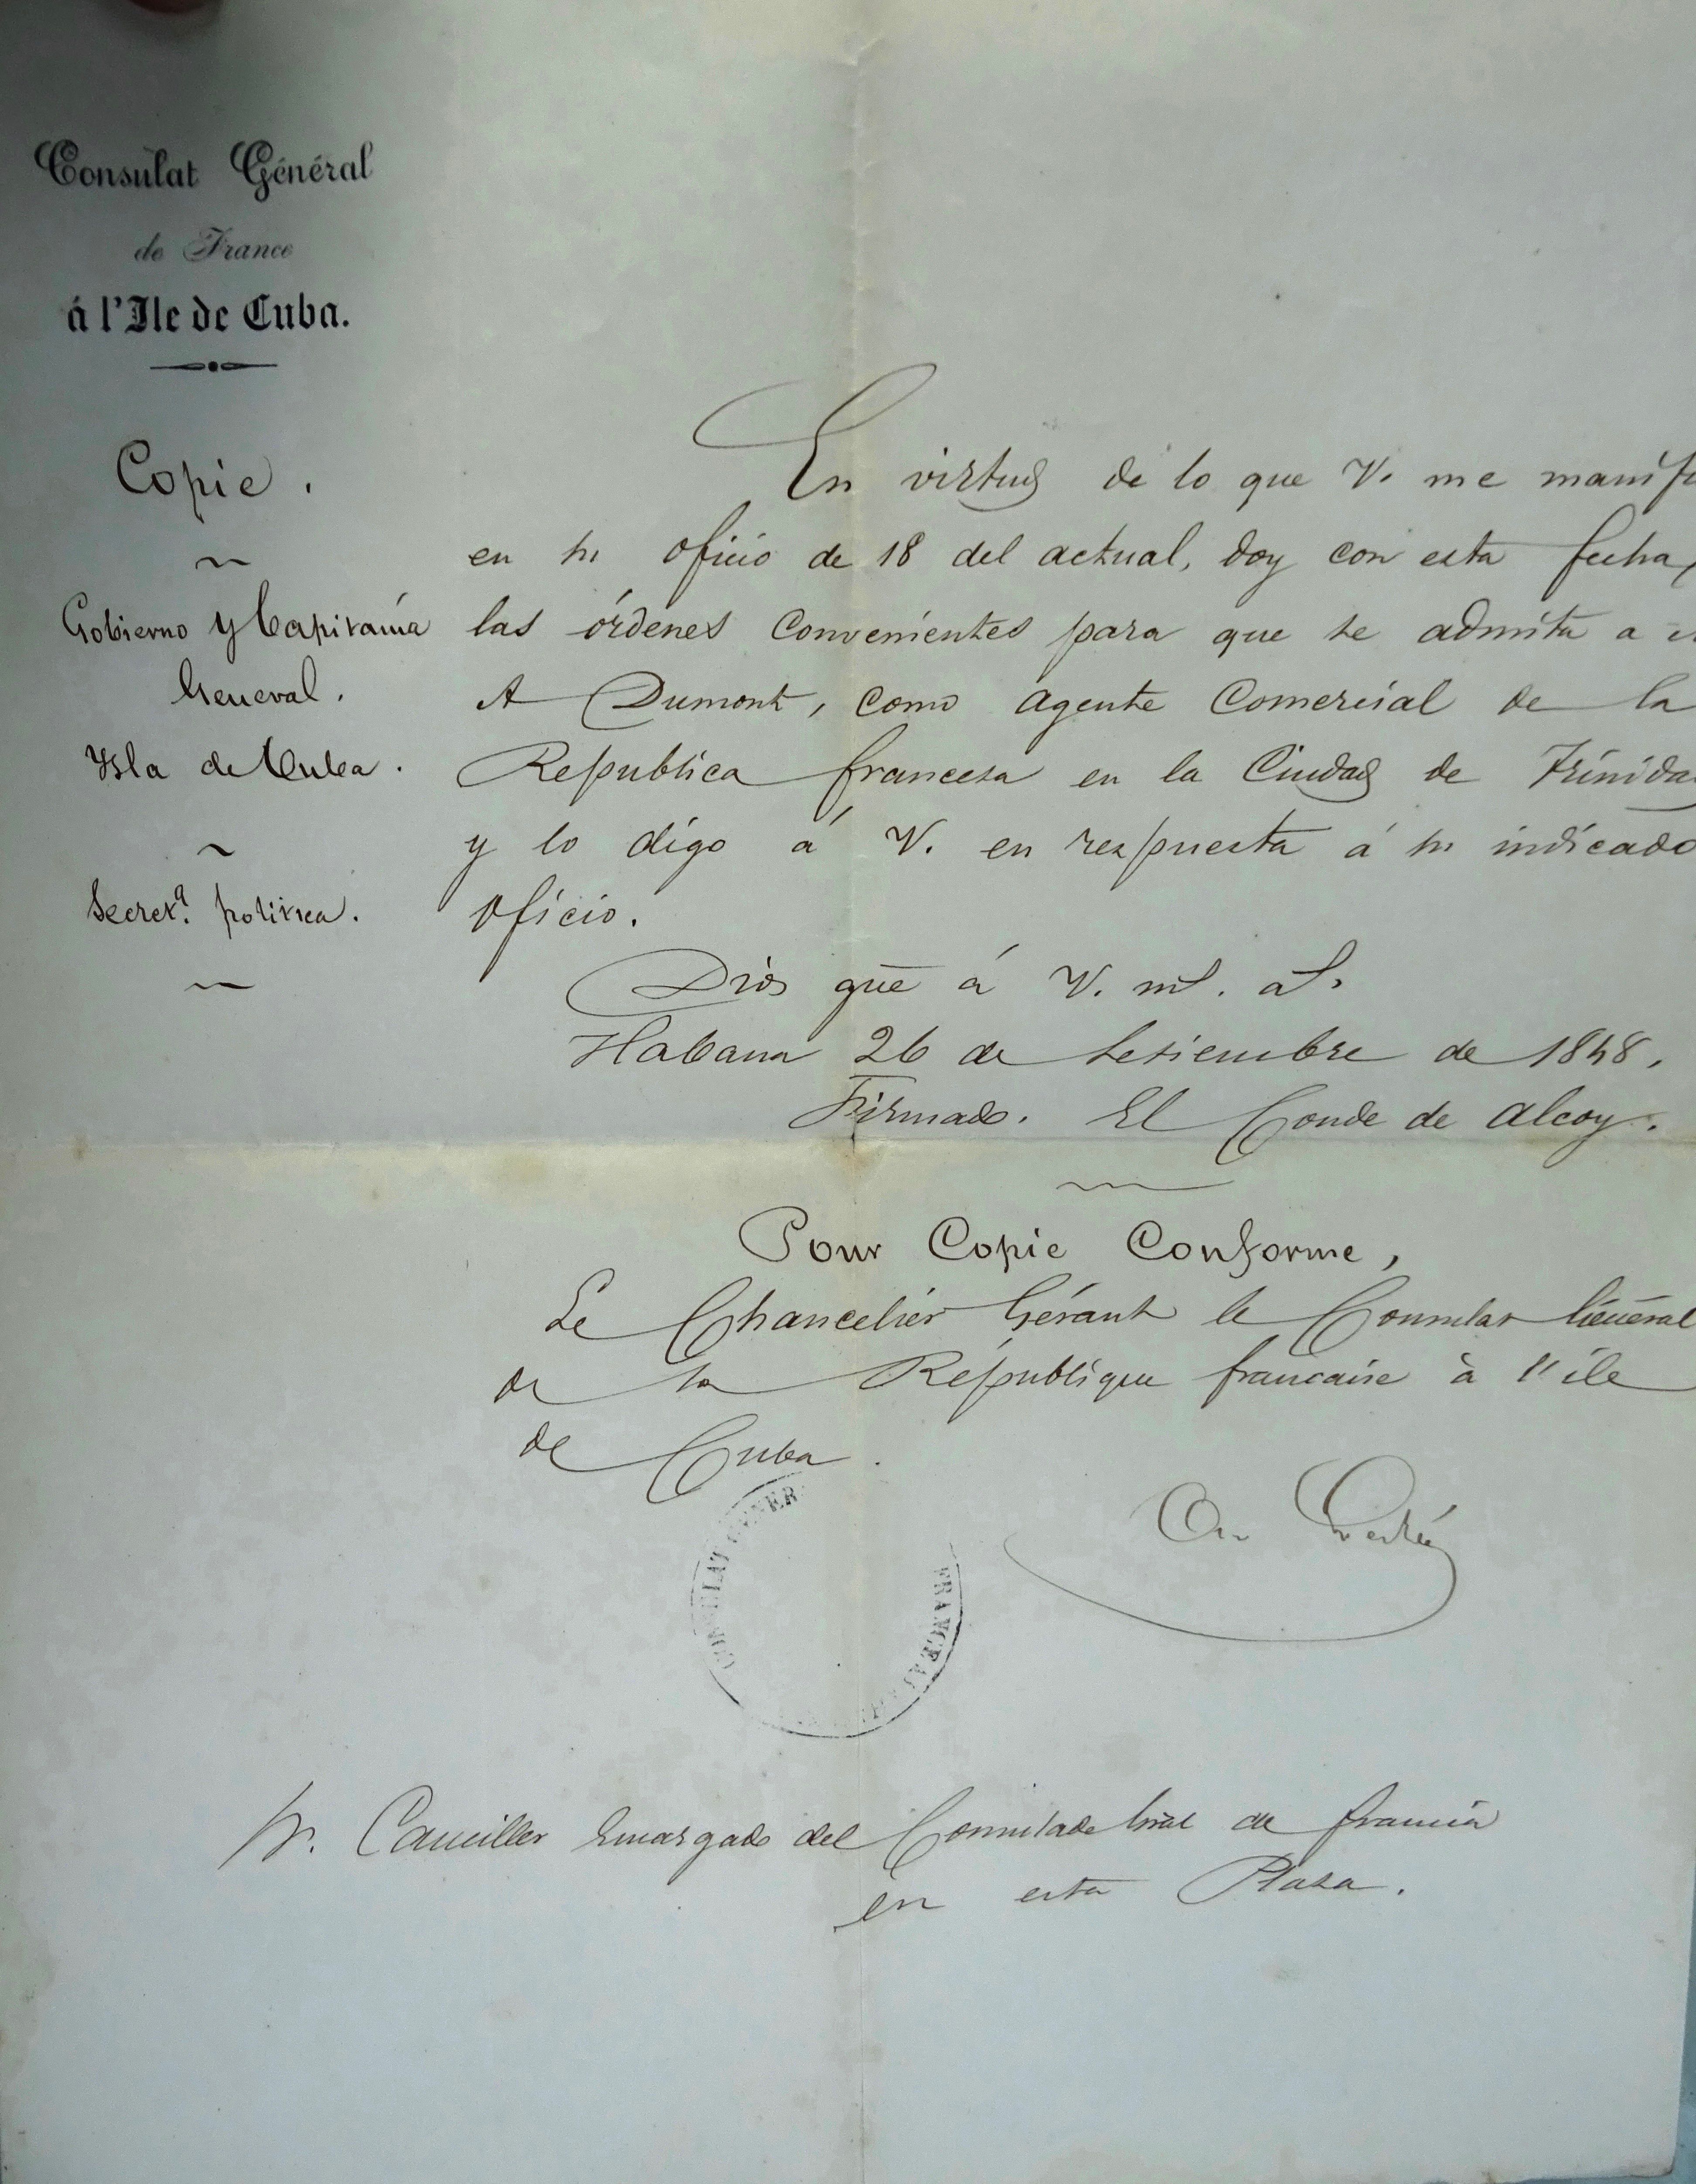 Consulat Général
de France
á l'Ile de Cuba.
Copie.
Gobierno y Capitanía
General.
Ysla de Cuba.
Secret.ª politica.
En virtud de lo que V. me manif
en su oficio de 18 del actual, doy con esta fecha,
las órdenes convenientes para que se admita a
A Dumont, como agente Comercial de la
Republica francesa en la Ciudad de Trinida
y lo digo á V. en respuesta á su indicado
oficio.
Dios gue á V. ms. as.
Habana 26 de Setiembre de 1848.
Firmado. El Conde de Alcoy.
Pour Copie Conforme,
Le Chancelier Gérant le Consulat Général
de la République francaise à l'île
de Cuba.
CONSULAT GENER
FRANCE A
Sr. Canciller Encargado del Consulado Gral de Francia
en esta Plaza.